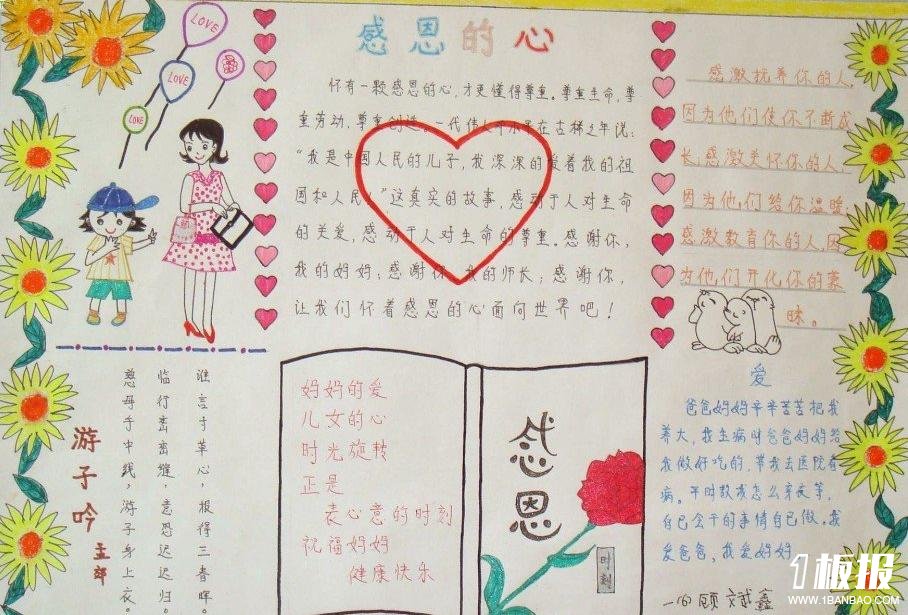 感恩的心
怀有一颗感恩的心，才更懂得尊重。尊重生命，尊
重劳动，尊重创造。一代伟人邓小平在古稀之年说：
“我是中国人民的儿子，我深深的爱着我的祖
国和人民！”这真实的故事，感动于人对生命
的关爱，感动于人对生命的尊重。感谢你，
我的妈妈；感谢你，我的师长；感谢你，
让我们怀着感恩的心面向世界吧！
LOVE
LOVE
LOVE
感激抚养你的人，
因为他们使你不断成
长，感激关怀你的人，
因为他们给你温暖，
感激教育你的人，因
为他们开化你的蒙
昧。
游子吟
慈母手中线，游子身上衣。
临行密密缝，意恐迟迟归。
谁言寸草心，报得三春晖。
妈妈的爱
儿女的心
时光旋转
正是
表心意的时刻
祝福妈妈
健康快乐
感恩
时刻
爱
爸爸妈妈辛辛苦苦把我
养大，我生病时爸爸妈妈给
我做好吃的，带我去医院看
病。平时教我怎么穿衣等，
自己会干的事情自己做。我
爱爸爸，我爱妈妈
1板报
WWW.1BANBAO.COM